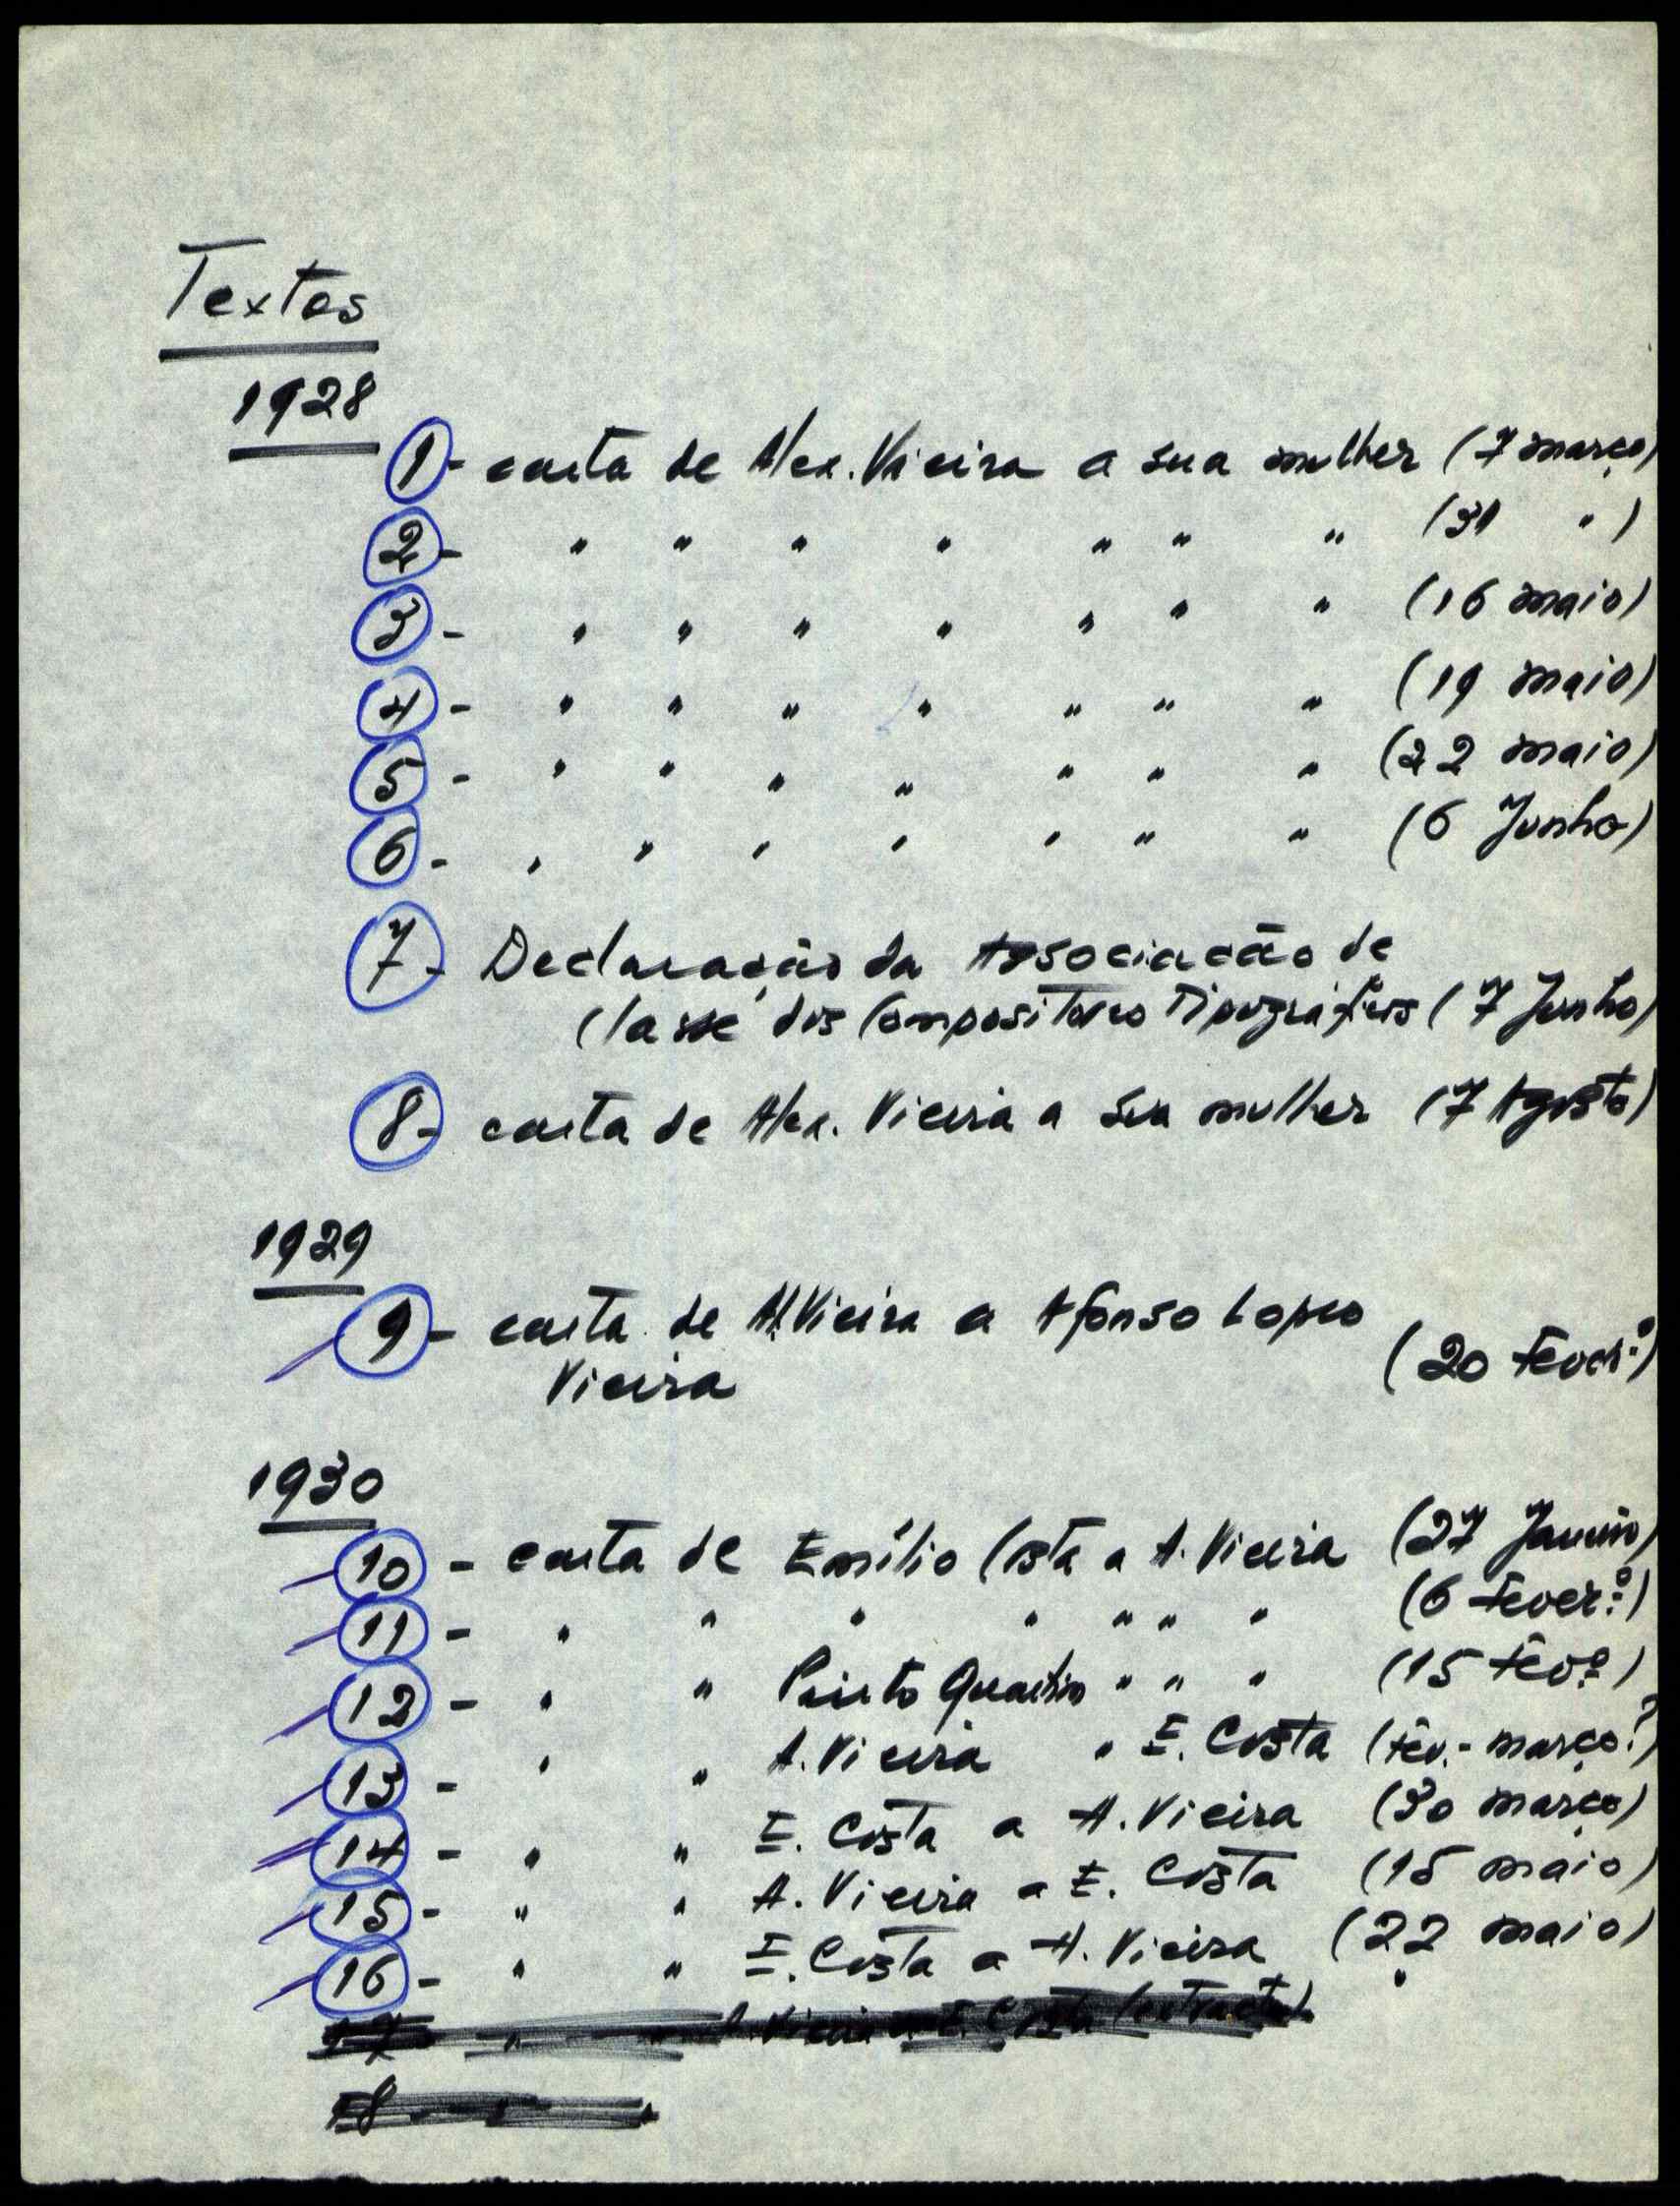 Textos
1928
1 - carta de Alex. Vieira a sua mulher (7 março)
2 - " " " " " " " (31 ")
3 - " " " " " " " (16 maio)
4 - " " " " " " " (19 maio)
5 - " " " " " " " (22 maio)
6 - " " " " " " " (6 Junho)
7 - Declaração da Associacão de
Classe dos Compositores Tipográficos (7 Junho)
8 - carta de Alex. Vieira a sua mulher (7 Agosto)
1929
9 - carta de A. Vieira a Afonso Lopes
Vieira (20 Fever.º)
1930
10 - carta de Emílio Costa a A. Vieira (27 Janeiro)
11 - " " " " " " " (6 Fever.º)
12 - " " Pinto Quartin " " " (15 Fêv.º)
13 - " " A. Vieira " E. Costa (Fêv. - março?)
14 - " " E. Costa a A. Vieira (30 março)
15 - " " A. Vieira a E. Costa (15 maio)
16 - " " E. Costa a A. Vieira (22 maio)
17 " " A. Vieira a E. Costa (extracto)
18